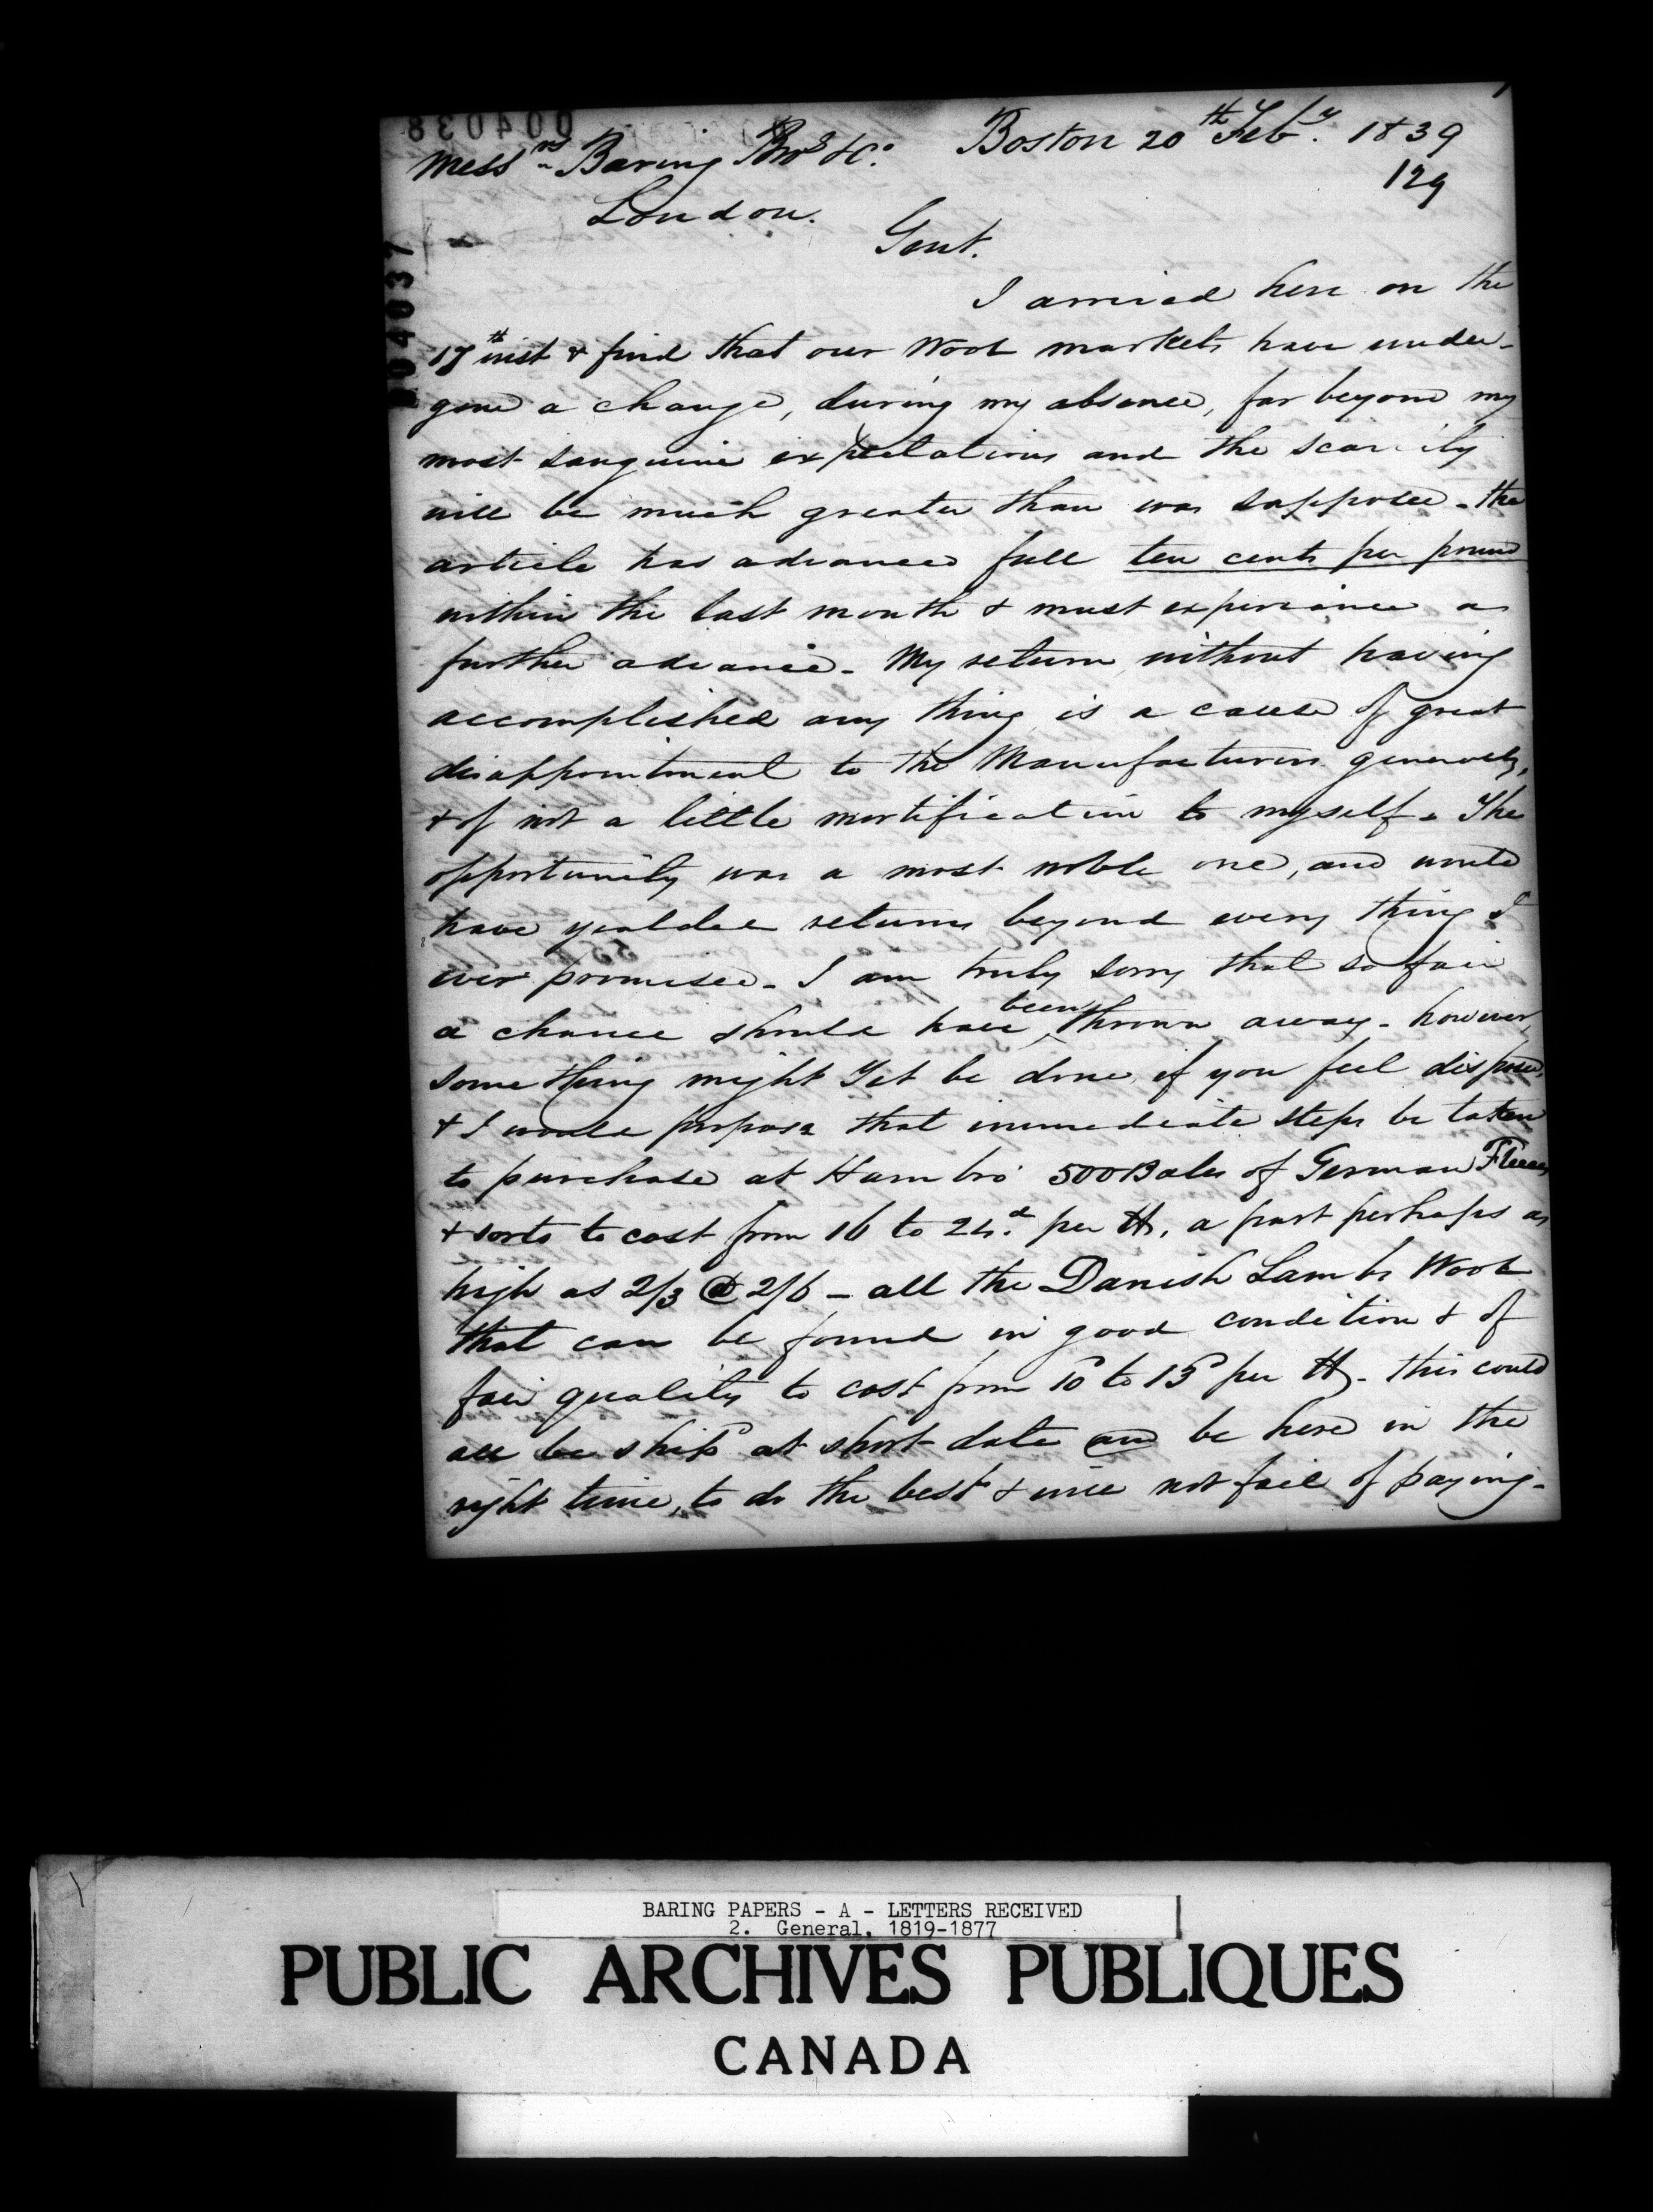 004038
Mess.rs Baring Bro.s & Co. Boston 20th Feby. 1839
129
London.
004037
Gent.
I arrived here on the
17th inst & find that our Wool markets have under-
gone a change, during my absence, far beyond my
most sanguine expectations and the scarcity
will be much greater than was supposed - the
article has advanced full ten cents per pound
within the last month & must experience a
further advance - My return without having
accomplished any thing is a cause of great
disappointment to the Manufacturers generally,
& of not a little mortification to myself. The
opportunity was a most noble one, and would
have yealded returns beyond every thing I
ever promised - I am truly sorry that so fair
a chance should have been thrown away - however
something might Yet be done, if you feel disposed,
& I would propose that immediate steps be taken
to purchase at Hambro' 500 Bales of German Fleeces
& sorts to cost from 16 to 24d. per lb, a part perhaps as
high as 2/3 @ 2/6 - all the Danish Lambs Wool
that can be found in good condition & of
fair quality to cost from 10d to 15d per lb - this could
all be ship'd at short date and be here in the
right time, to do the best & will not fail of paying -
BARING PAPERS - A - LETTERS RECEIVED
2. General, 1819-1877
PUBLIC ARCHIVES PUBLIQUES
CANADA